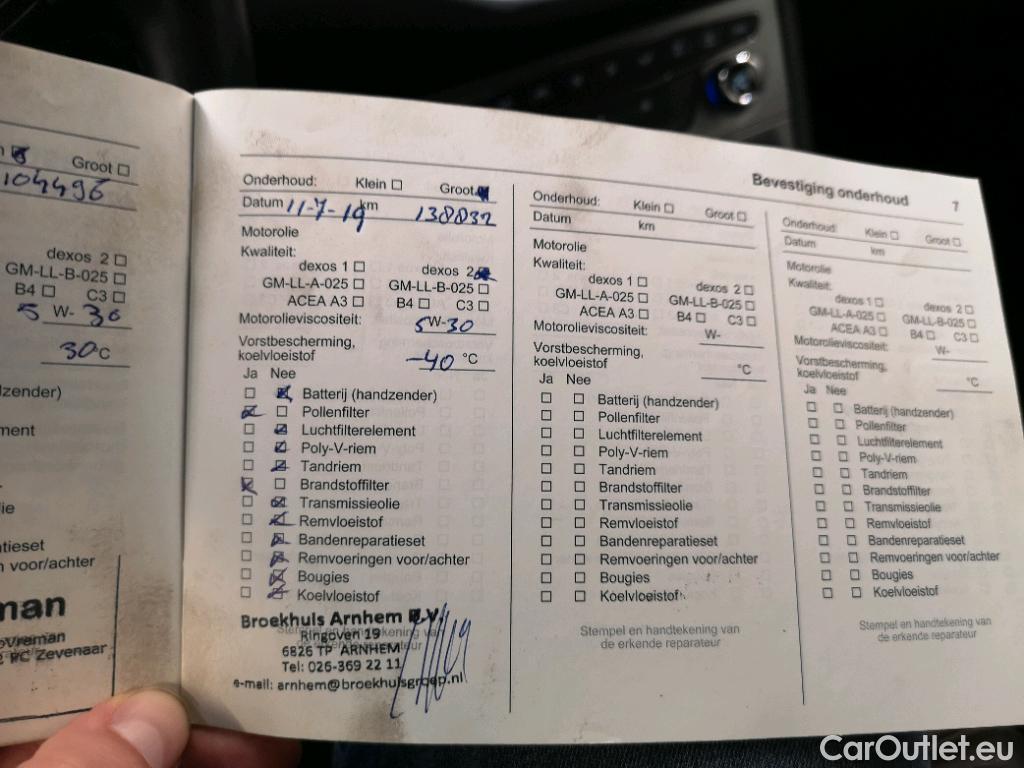 Groot
104496
dexos 2
GM-LL-B-025
B4 C3
5 W- 30
30 °C
Bevestiging onderhoud 7
Onderhoud: Klein Groot
Datum 11-7-19 km 138832
Motorolie
Kwaliteit:
dexos 1 dexos 2
GM-LL-A-025 GM-LL-B-025
ACEA A3 B4 C3
Motorolieviscositeit: 5W-30
Vorstbescherming,
koelvloeistof -40 °C
Ja Nee
Batterij (handzender)
Pollenfilter
Luchtfilterelement
Poly-V-riem
Tandriem
Brandstoffilter
Transmissieolie
Remvloeistof
Bandenreparatieset
Remvoeringen voor/achter
Bougies
Koelvloeistof
Broekhuis Arnhem B.V.
Ringoven 19
6826 TP ARNHEM
Tel: 026-369 22 11
e-mail: arnhem@broekhuisgroep.nl
Onderhoud: Klein Groot
Datum km
Motorolie
Kwaliteit:
dexos 1 dexos 2
GM-LL-A-025 GM-LL-B-025
ACEA A3 B4 C3
Motorolieviscositeit: W-
Vorstbescherming,
koelvloeistof °C
Ja Nee
Batterij (handzender)
Pollenfilter
Luchtfilterelement
Poly-V-riem
Tandriem
Brandstoffilter
Transmissieolie
Remvloeistof
Bandenreparatieset
Remvoeringen voor/achter
Bougies
Koelvloeistof
Stempel en handtekening van
de erkende reparateur
Onderhoud: Klein Groot
Datum km
Motorolie
Kwaliteit:
dexos 1 dexos 2
GM-LL-A-025 GM-LL-B-025
ACEA A3 B4 C3
Motorolieviscositeit: W-
Vorstbescherming,
koelvloeistof °C
Ja Nee
Batterij (handzender)
Pollenfilter
Luchtfilterelement
Poly-V-riem
Tandriem
Brandstoffilter
Transmissieolie
Remvloeistof
Bandenreparatieset
Remvoeringen voor/achter
Bougies
Koelvloeistof
Stempel en handtekening van
de erkende reparateur
voor/achter
Zevenaar
CarOutlet.eu